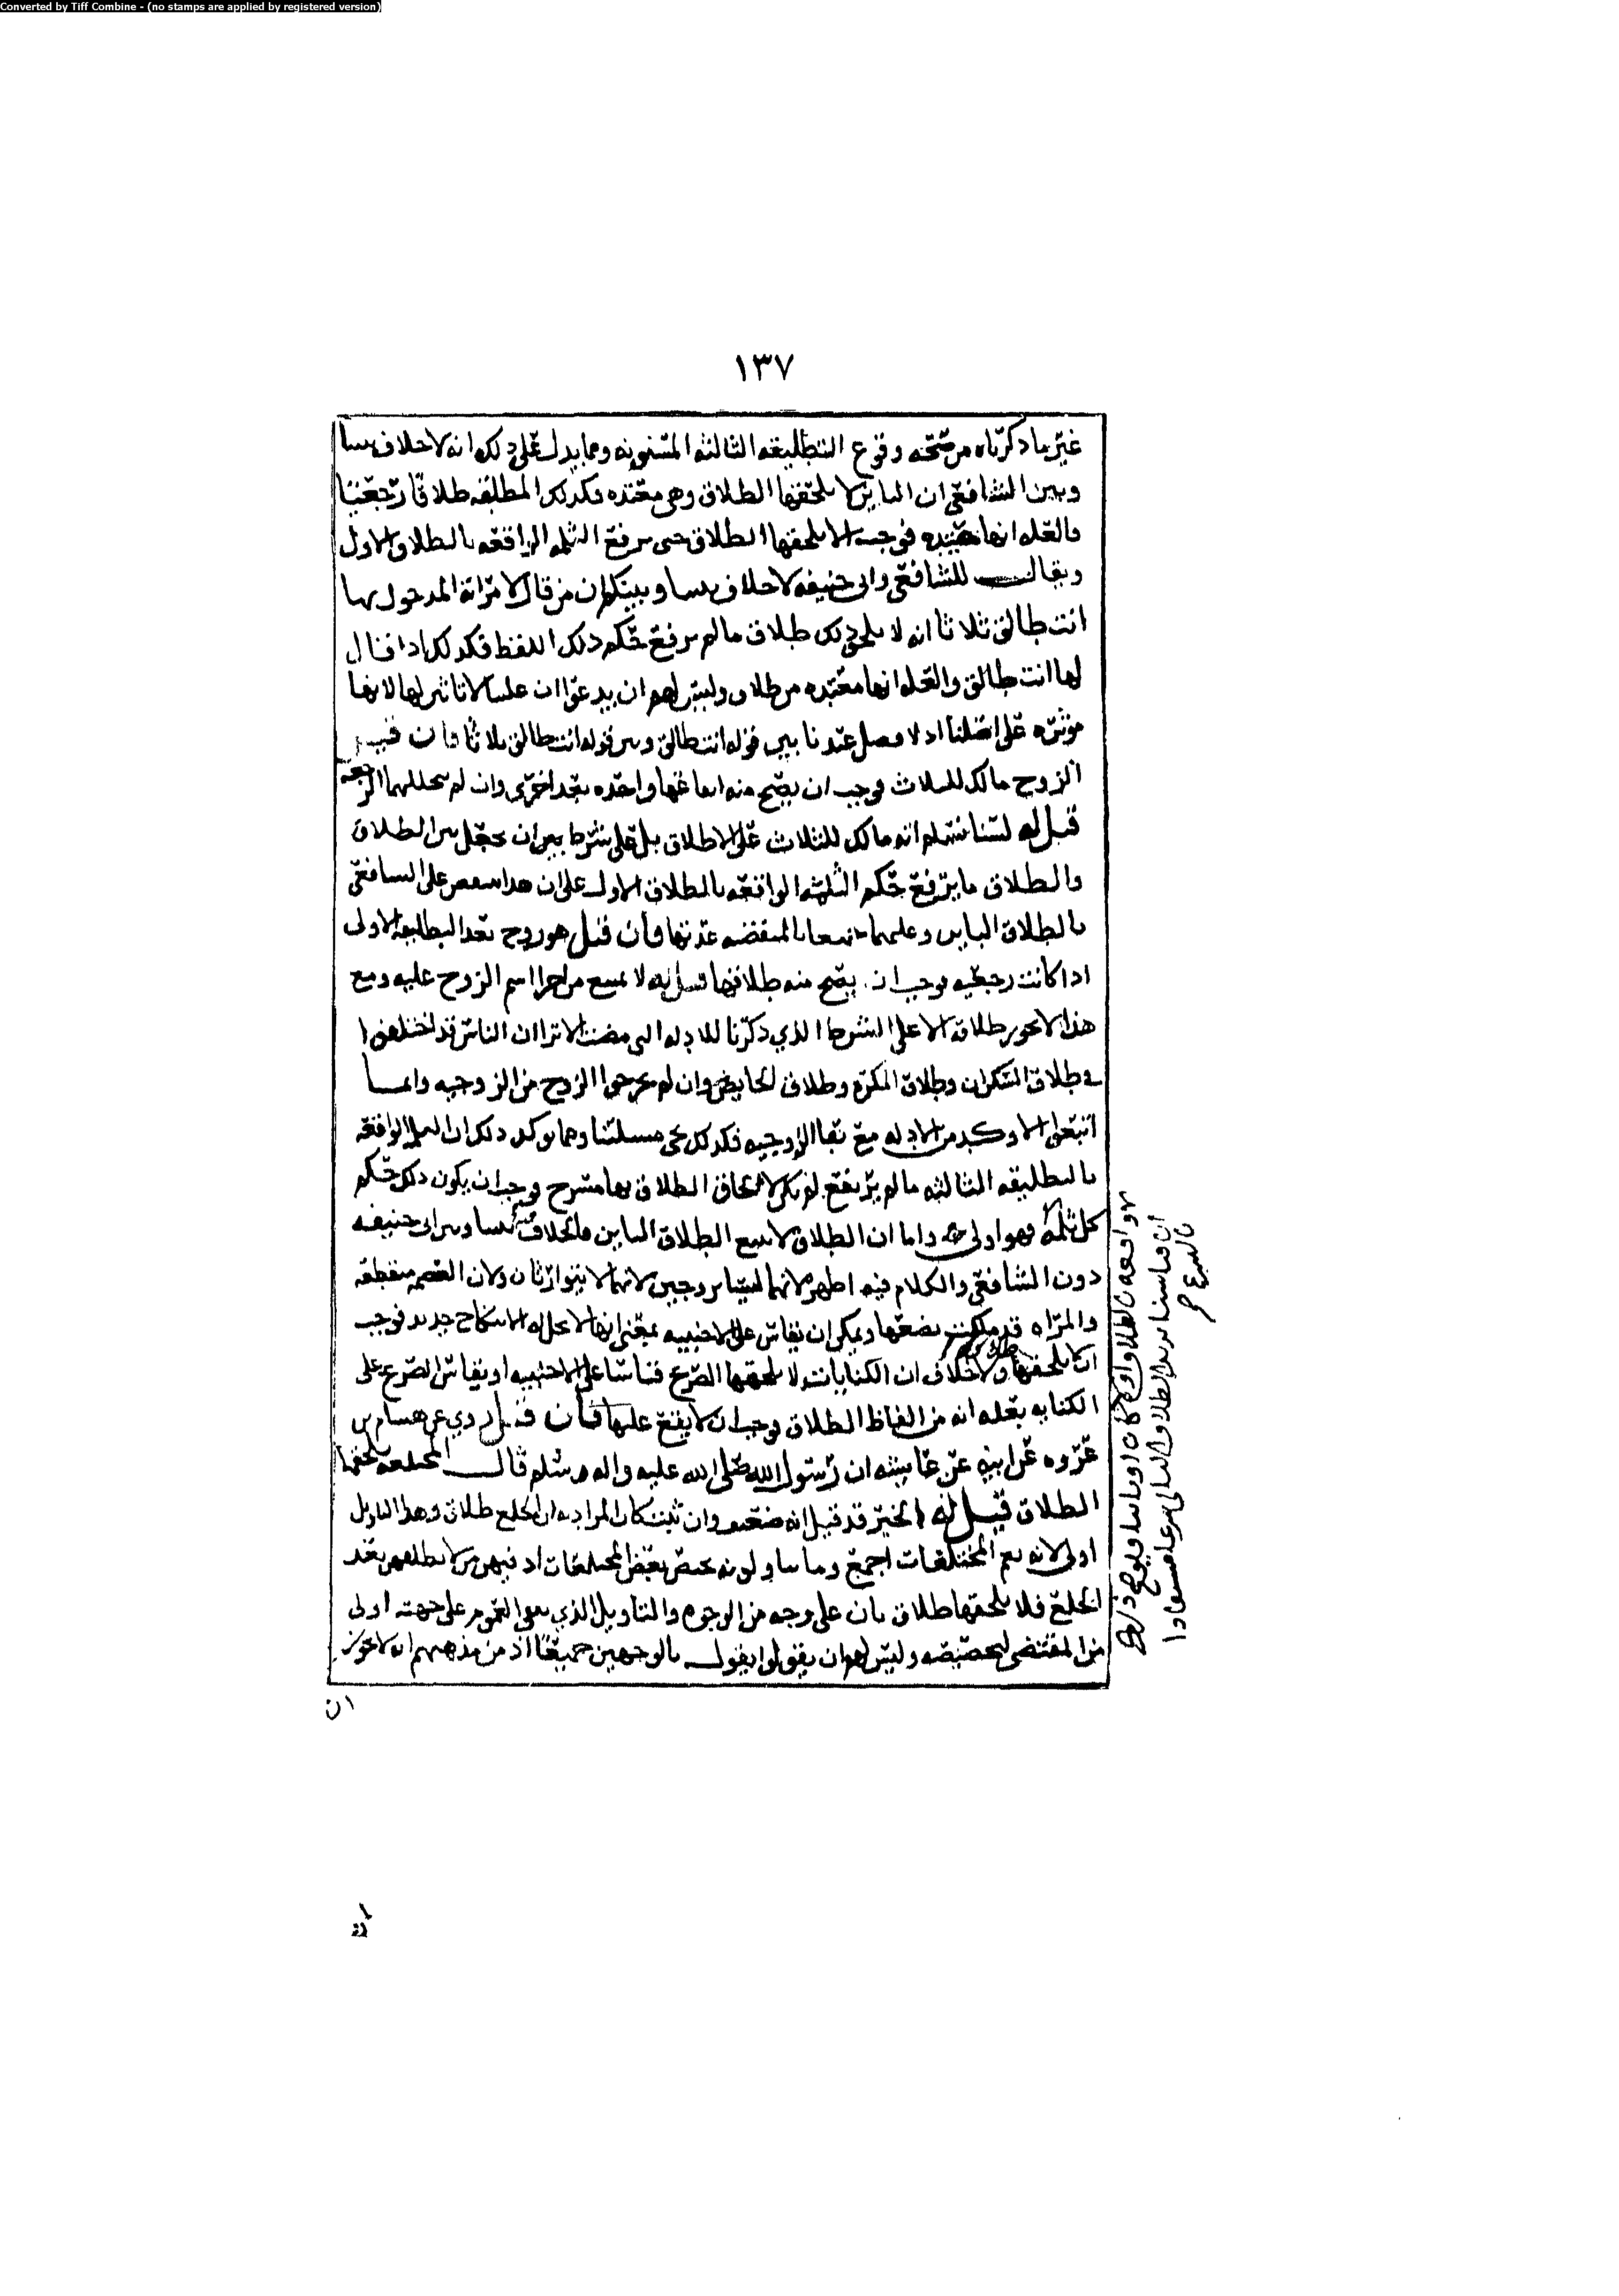 Converted by Tiff Combine - (no stamps are applied by registered version)
١٣٧
غير ما ذكرناه من صحته وقوع التطليقه الثالثه المسنونه ومما يدل على ذلك انه لا خلاف بيننا
وبين الشافعي ان الباين لا يلحقها الطلاق وهي معتده فكذلك المطلقه طلاقا رجعيا
والعله انها معتده فوجب الا يلحقها الطلاق حتى يرفع الثلمه الواقعه بالطلاق الاول
ويقال للشافعي وابي حنيفه لا خلاف بيننا وبينكم ان من قال لامراته المدخول بها
انت طالق ثلاثا انه لا يلحق ذلك طلاق ما لم يرفع حكم ذلك اللفظ فكذلك اذا قال
لها انت طالق والعله انها معتده من طلاق وليس لهم ان يدعوا ان علتنا لا تاثير لها لانها
موثره على اصلنا اذ لا فصل عندنا بين قوله انت طالق وبين قوله انت طالق ثلاثا فان قيل
الزوج مالك للثلاث فوجب ان يصح منه ايقاعها واحده بعد اخرى وان لم يتخللهما الرجعه
قيل له لسنا نسلم انه مالك للثلاث على الاطلاق بل على شرط بين ان يجعل بين الطلاق
والطلاق ما يرفع حكم الثلمه الواقعه بالطلاق الاول على ان هذا ينتقض على الشافعي
بالطلاق الباين وعليهما جميعا بالمنقضيه عدتها فان قيل هو زوج بعد التطليقه الاولى
اذا كانت رجعيه فوجب ان يصح منه طلاقها قيل له لا يمتنع من اجرا اسم الزوج عليه ومع
هذا لا يجوز طلاقه الا على الشرط الذي ذكرنا للادله التي مضت الا ترا ان الناس قد اختلفوا
في طلاق السكران وطلاق المكره وطلاق الحايض وان لم يخرجوا الزوج من الزوجيه وانما
اتبعوا الاوكد من الادله مع بقا الزوجيه فكذلك في مسلتنا ومما يوكد ذلك ان الثلمه الواقعه
بالتطليقه الثالثه ما لم يرتفع لم يكن لالحاق الطلاق بها مسرح فوجب ان يكون ذلك حكم
كل ثلمه وهو اولى واما ان الطلاق لا يتبع الطلاق الباين فالخلاف فيه بيننا وبين ابي حنيفه
دون الشافعي والكلام فيه اظهر لانهما ليسا بزوجين لانهما لا يتوارثان ولان العصمه منقطعه
والمراه قد ملكت بضعها ويمكن ان يقاس على الاجنبيه بمعنى انها لا تحل له الا بنكاح جديد فوجب
ان لا يلحقها ولا خلاف ان الكنايات لا يلحقها الصريح قياسا على الاجنبيه او يقاس الصريح على
الكنايه بعله انه من الفاظ الطلاق فوجب ان لا يقع عليها فان قيل روي عن هشام بن
عروه عن ابيه عن عايشه ان رسول الله صلى الله عليه واله وسلم قال المختلعه يلحقها
الطلاق قيل له الخبر قد قيل انه ضعيف وان ثبت كان المراد به ان الخلع طلاق وهذا التاويل
اولى لانه يعم المختلعات اجمع وما تاولونه يختص بعض المختلعات اذ فيهن من لا يطلقهن بعد
الخلع فلا يلحقها طلاق بان على وجه من الوجوه والتاويل الذي يبقي العموم على جهته اولى
من المقتضي لتخصيصه وليس لهم ان يقولوا يقول بالوجهين جميعا اذ من مذهبهم انه لا يجوز
ان